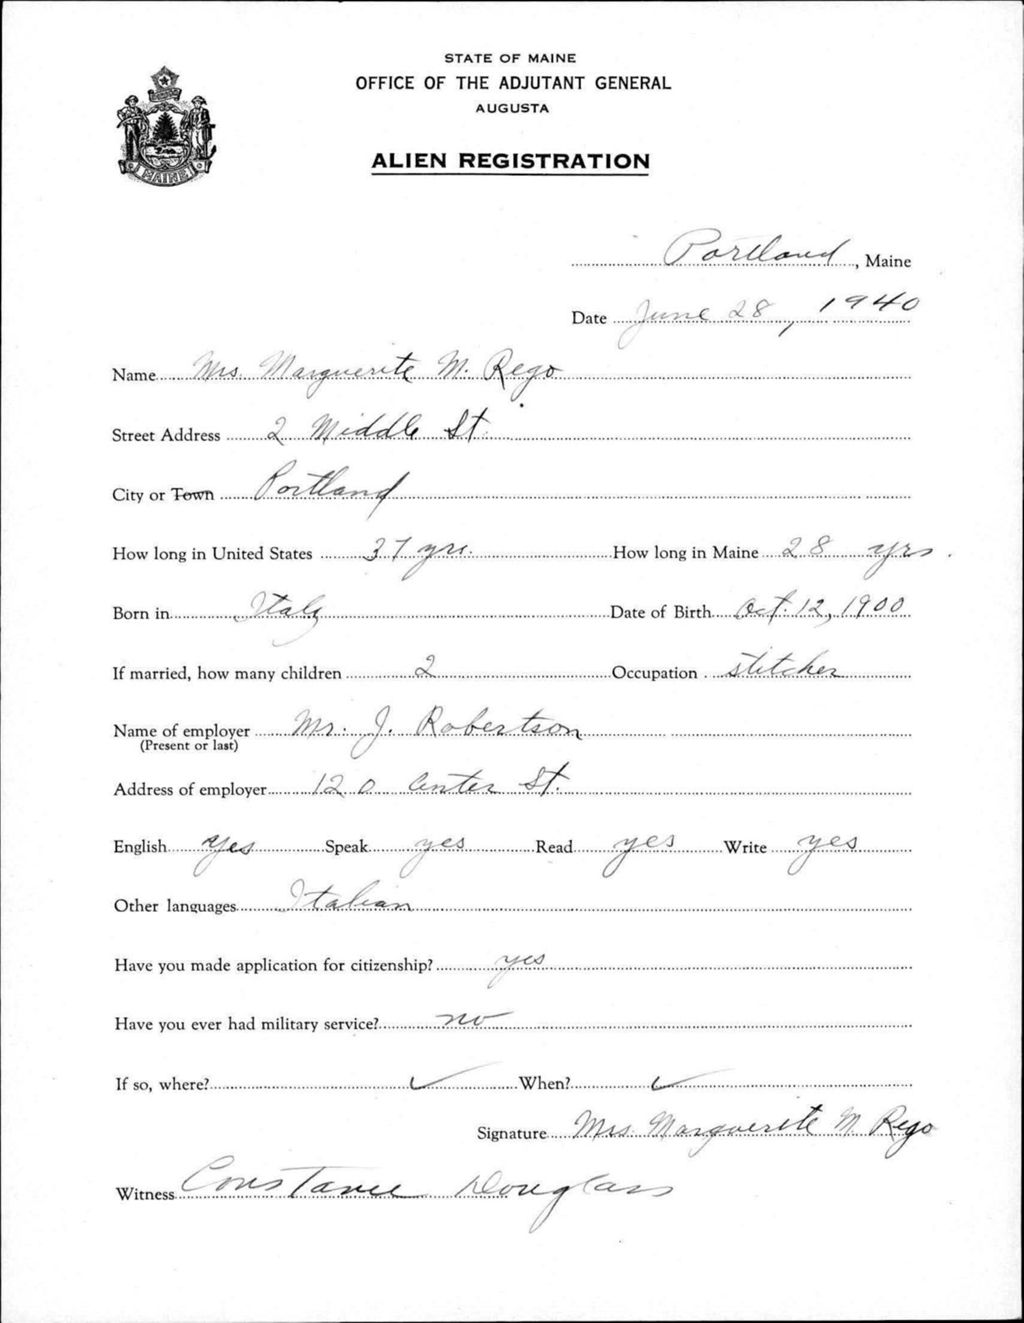 STATE OF MAINE
OFFICE OF THE ADJUTANT GENERAL
AUGUSTA
MAINE
ALIEN REGISTRATION
Portland, Maine
Date June 28, 1940
Name Mrs. Marguerite M. Rego
Street Address 2 Middle St.
City or Town Portland
How long in United States 37 yrs. How long in Maine 28 yrs.
Born in Italy Date of Birth Oct. 12, 1900
If married, how many children 2 Occupation stitcher
Name of employer Mr. J. Robertson
(Present or last)
Address of employer 120 Center St.
English yes Speak yes Read yes Write yes
Other languages Italian
Have you made application for citizenship? yes
Have you ever had military service? no
If so, where? ✓ When? ✓
Signature Mrs. Marguerite M. Rego
Witness Constance Douglass